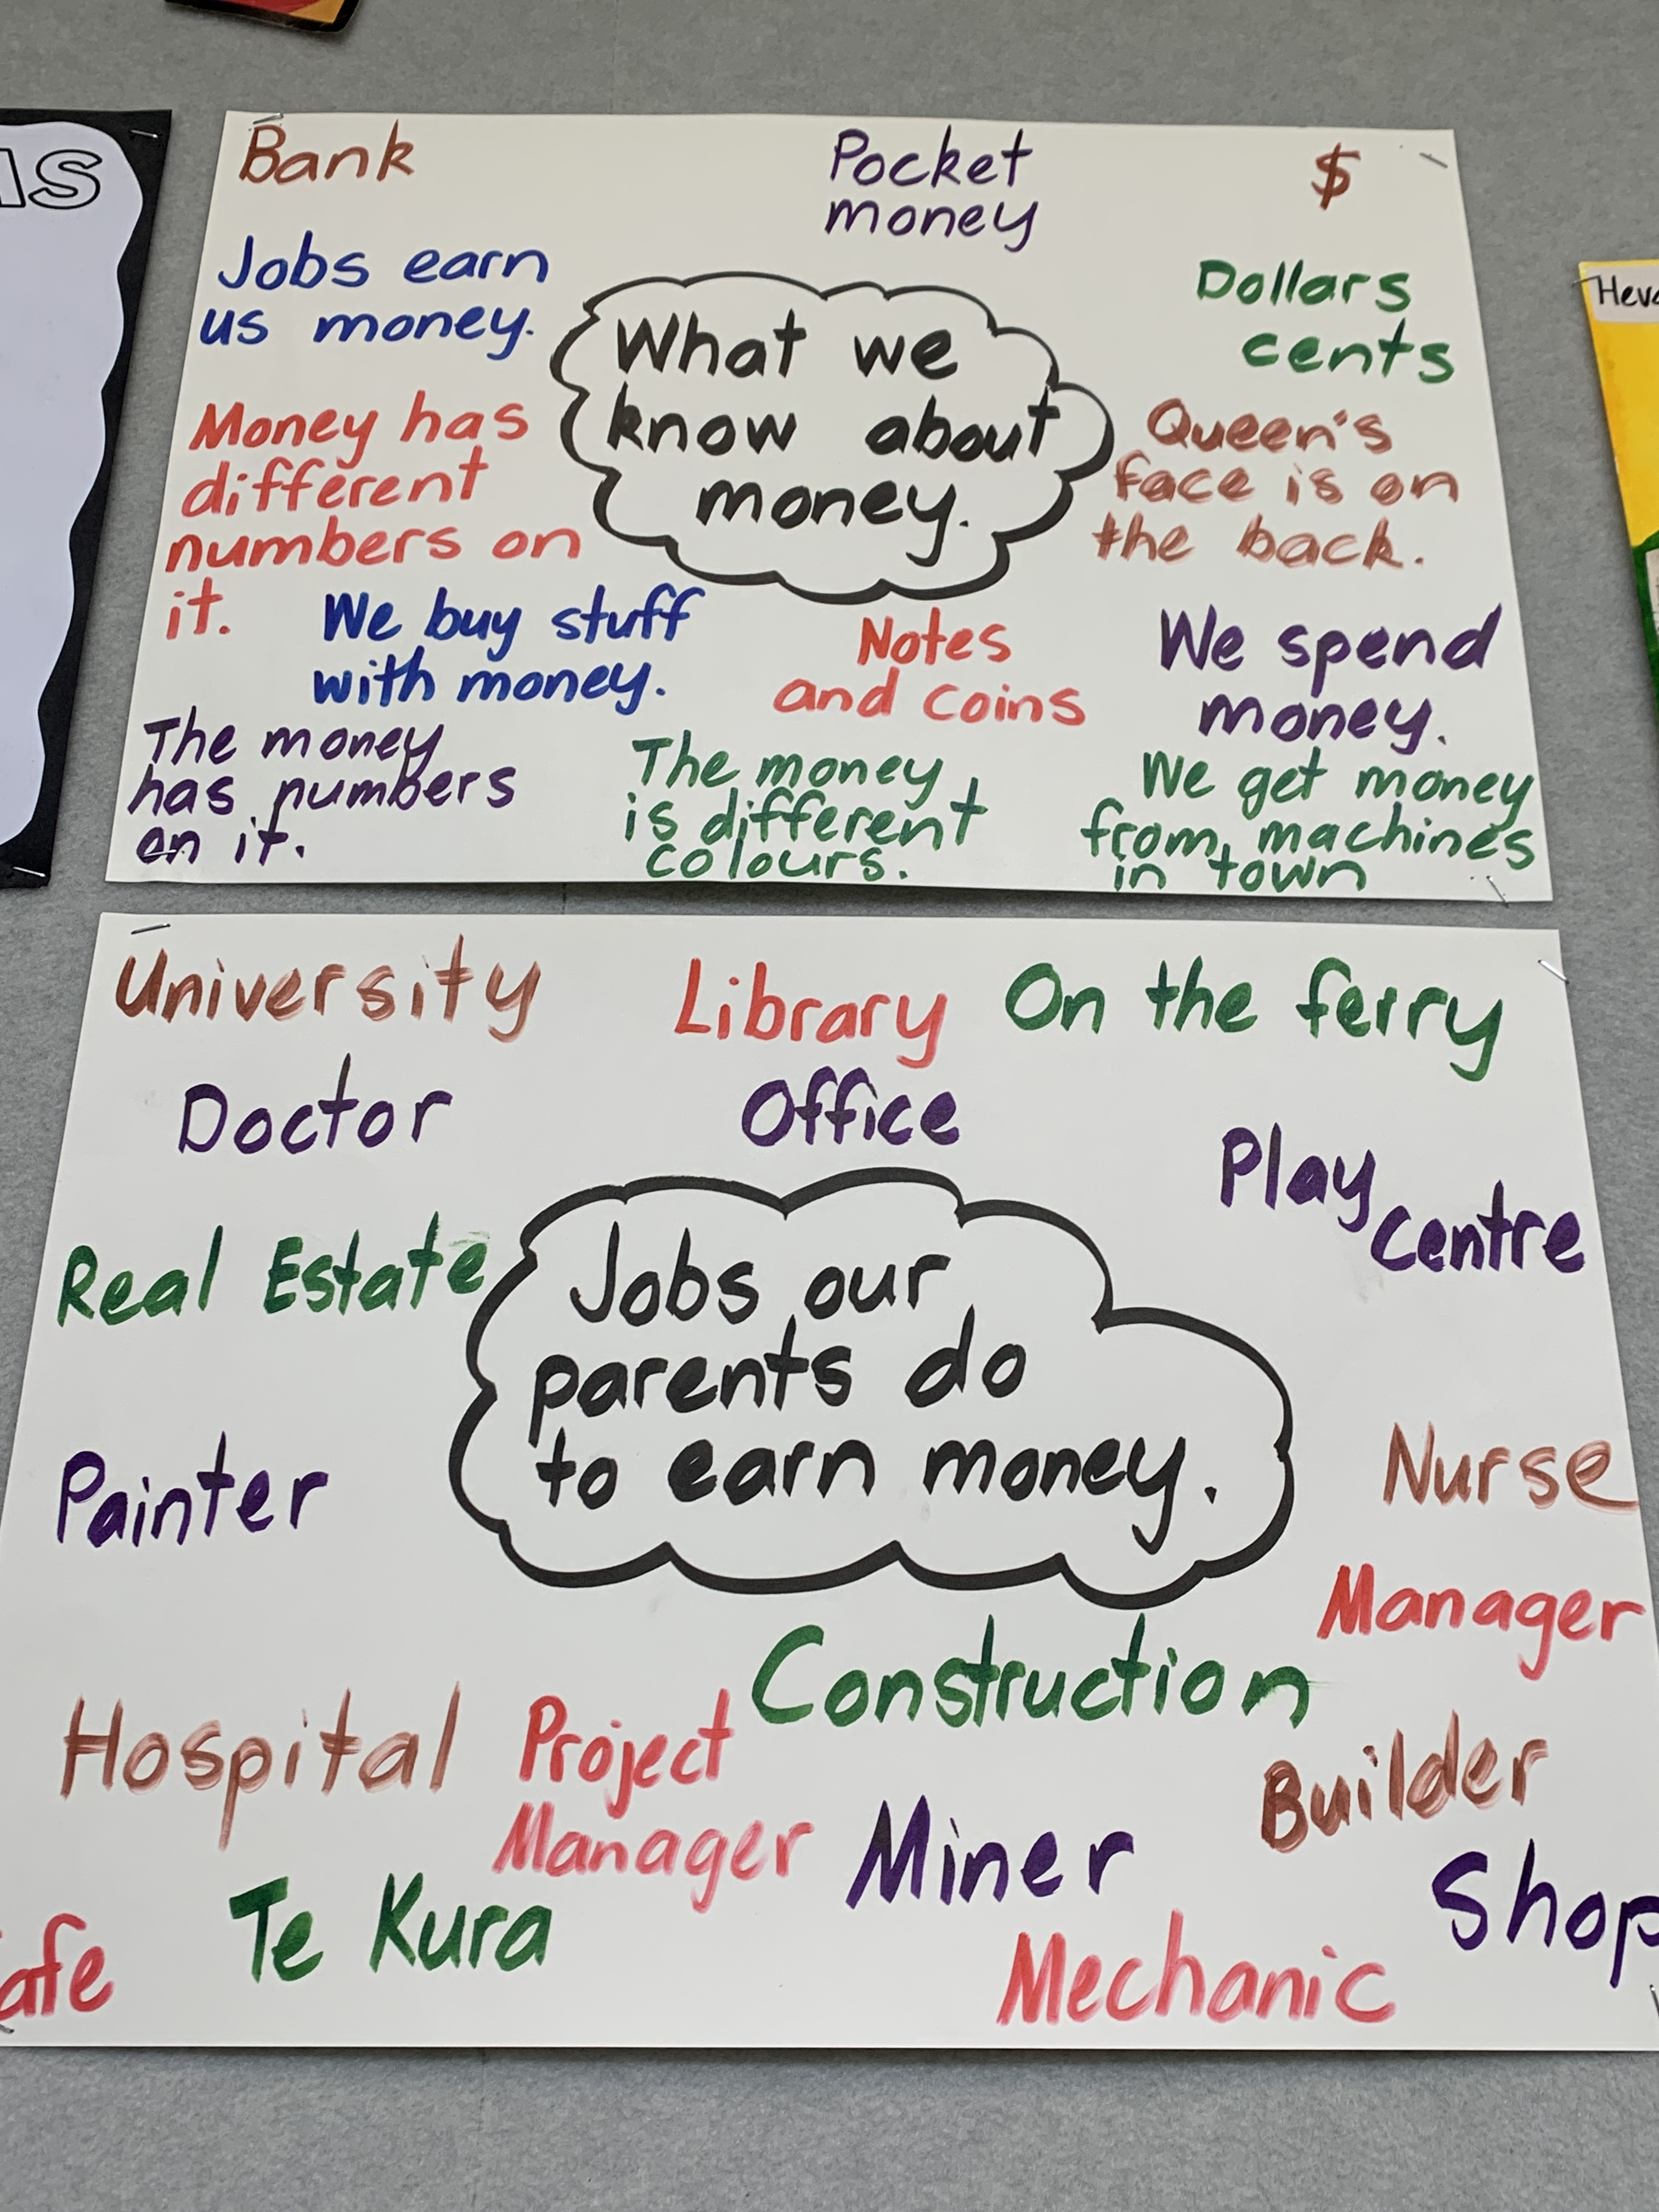 Bank
Pocket
money
$
Jobs earn
us money.
What we
know about
money.
Dollars
cents
Money has
different
numbers on
it.
Queen's
face is on
the back.
We buy stuff
with money.
Notes
and coins
We spend
money.
The money
has numbers
on it.
The money
is different
colours.
We get money
from machines
in town
University
Library
On the ferry
Doctor
Office
Play
centre
Real Estate
Jobs our
parents do
to earn money.
Painter
Nurse
Manager
Construction
Hospital
Project
Manager
Builder
Miner
Shop
Te Kura
afe
Mechanic